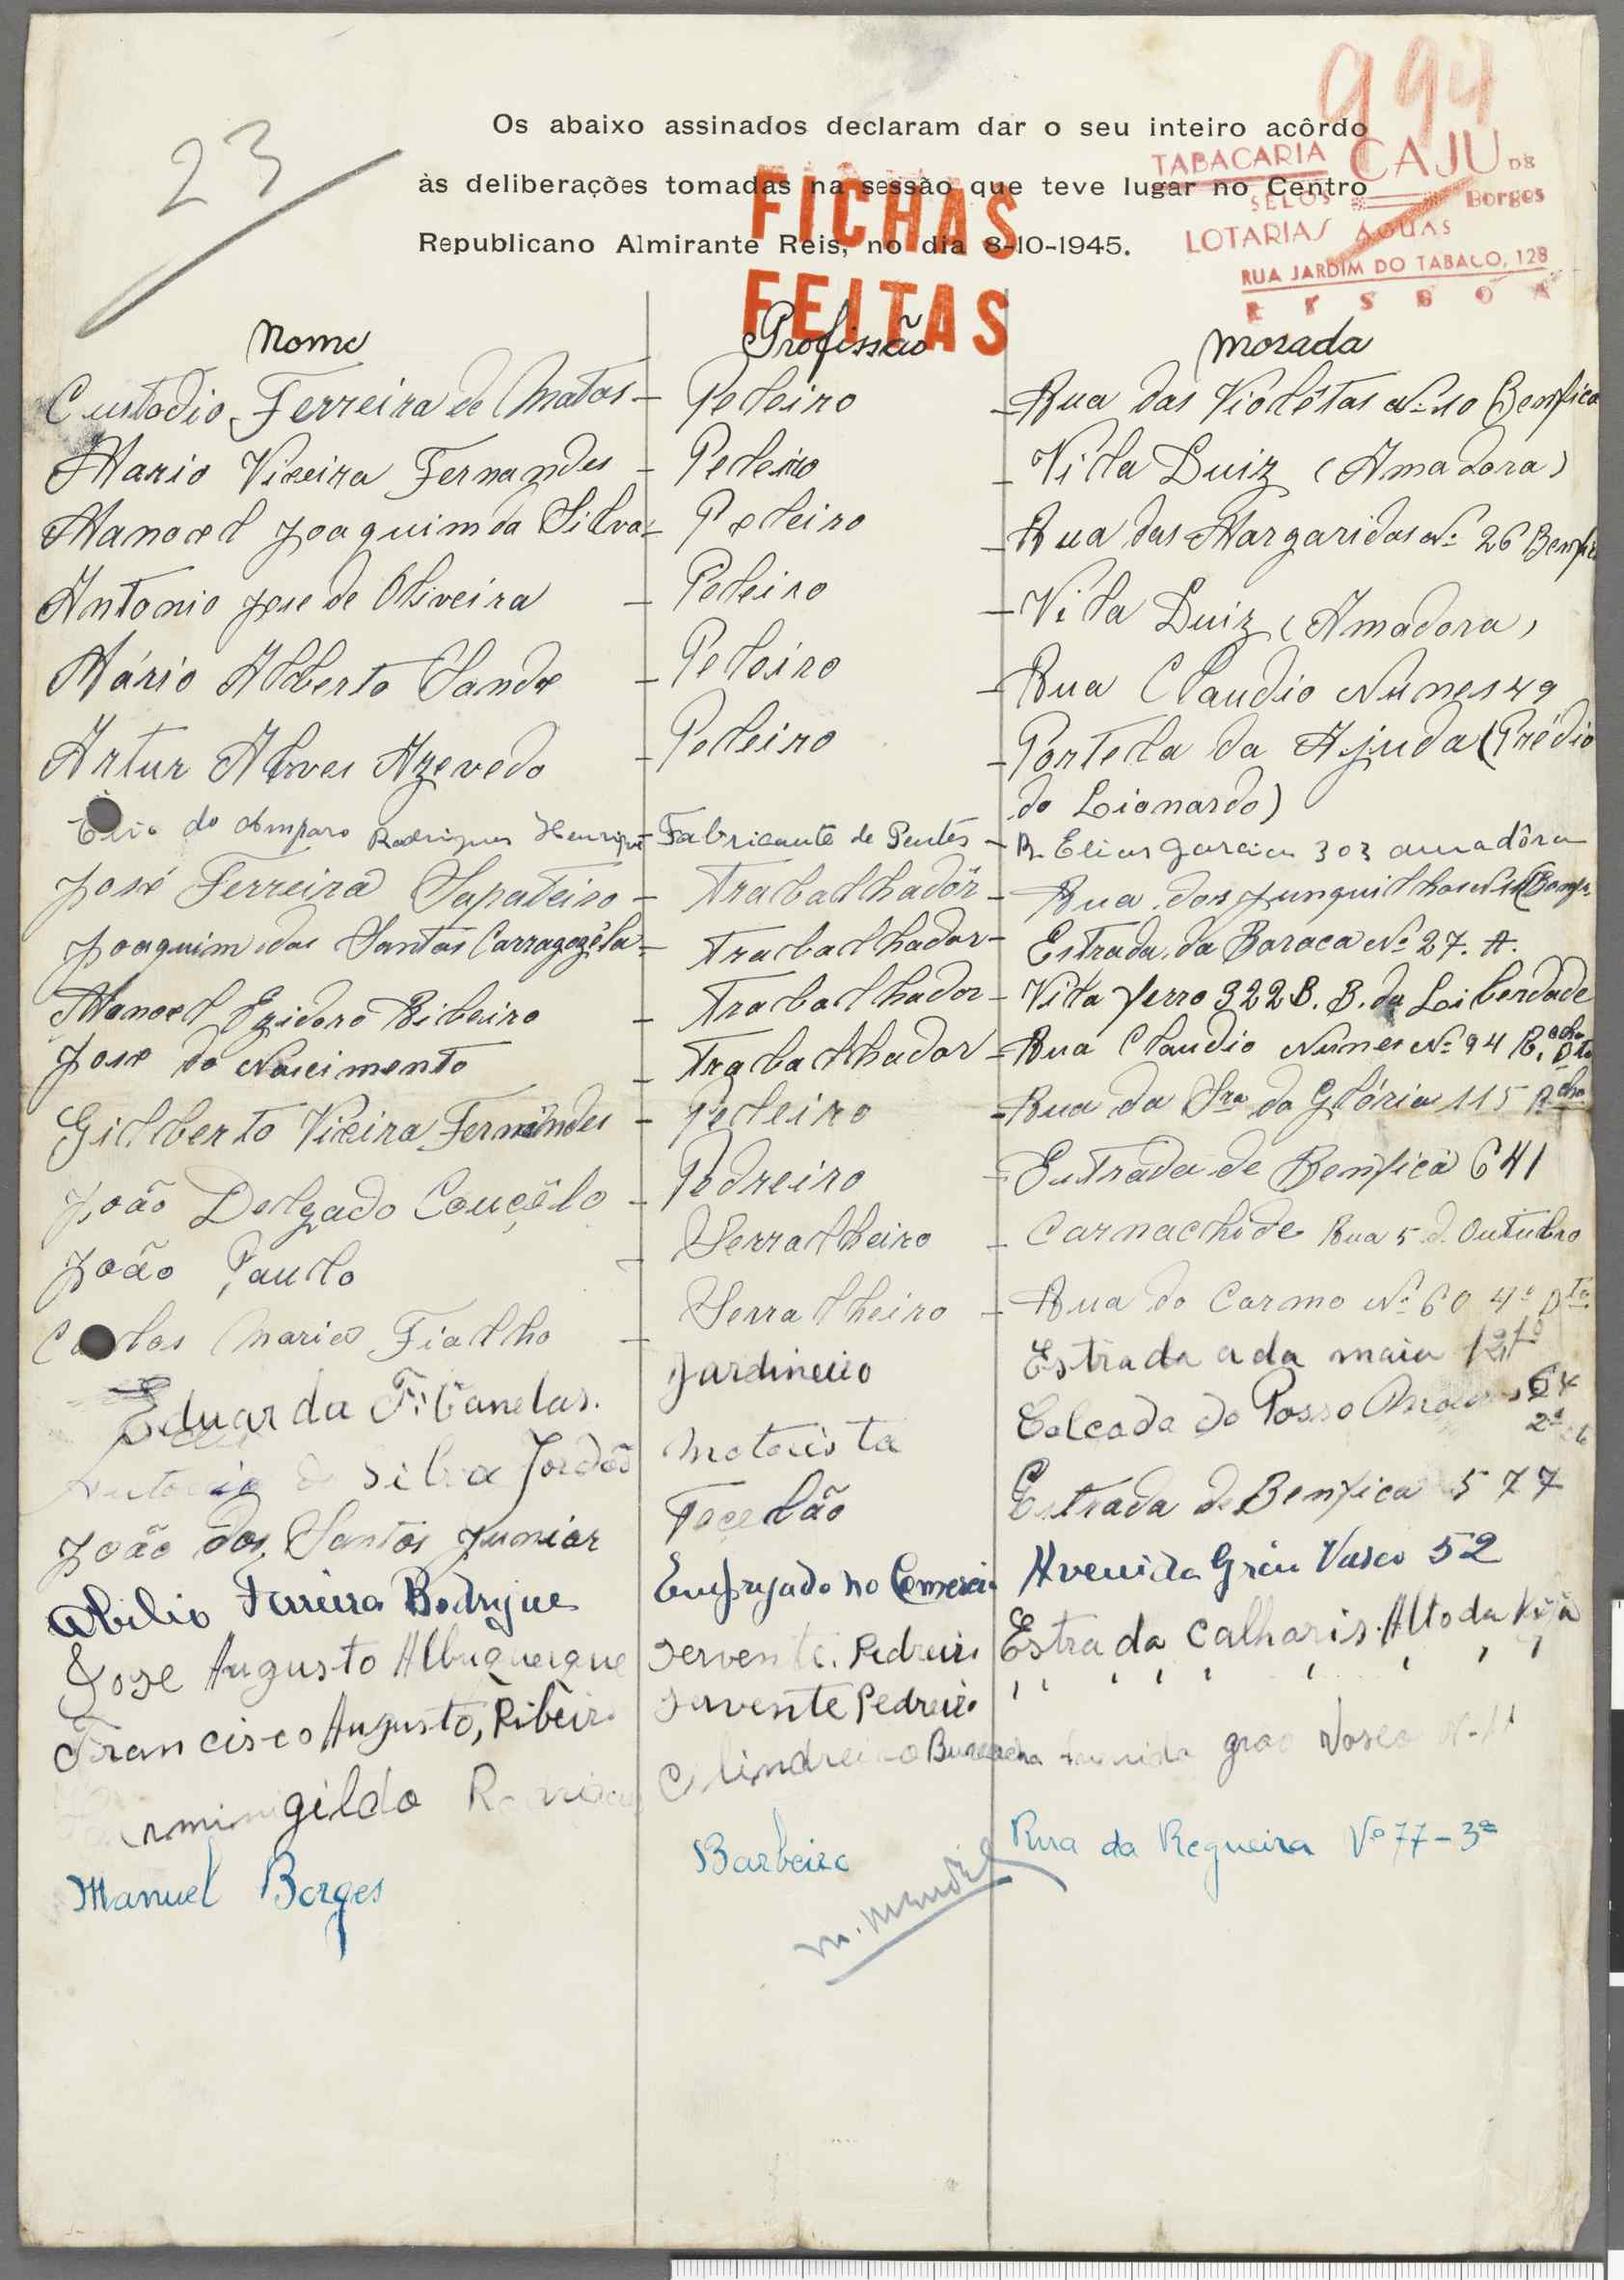 994
23
Os abaixo assinados declaram dar o seu inteiro acôrdo
às deliberações tomadas na sessão que teve lugar no Centro
Republicano Almirante Reis, no dia 8-10-1945.
TABACARIA CAJU DE
SELOS Borges
LOTARIAS AGUAS
RUA JARDIM DO TABACO, 128
LISBOA
FICHAS
FEITAS
Nome Profissão Morada
Custodio Ferreira de Matos - Peleiro - Rua das Violêtas Nº 10 Benfica
Mario Vieira Fernandes - Peleiro - Vila Luiz (Amadora)
Manoel Joaquim da Silva - Peleiro - Rua das Margaridas Nº 26
Antonio Jose de Oliveira - Peleiro - Vila Luiz (Amadora)
Mário Alberto Sande - Peleiro - Rua Claudio Nunes 49
Artur Alves Azevedo - Peleiro - Portela da Ajuda (Prédio
do Lionardo)
do Amparo Rodrigues - Fabricante de Pentes - R. Elias Garcia 303 amadôra
José Ferreira Sapateiro - Trabalhadôr - Rua dos Junquilhos
Joaquim dos Santos Carragozéla - Trabalhador - Estrada da Boraca Nº 27. A.
Manoel Ezidoro Ribeiro - Trabalhador - Vila Ferro 322 B. B. da Liberdade
José do Nascimento - Trabalhador - Rua Claudio Nunes Nº 94
Gilberto Vieira Fernandes - Peleiro - Rua da Sra da Glória 115
João Delgado Couçêlo - Pedreiro - Estrada de Benfica 641
João Paulo - Serralheiro - Carnachide Rua 5 d. Outubro
Carlos Maria Fialho - Serralheiro - Rua do Carmo Nº 60 4º Dto
Eduarda Jardineiro Estrada a da maia
da Silva Jordão Motorista Calcada do Posso 64
2º
João dos Santos Junior Tecelão Estrada de Benfica 577
Abilio Ferreira Rodrigues Empregado no Comercio Avenida Grão Vasco 52
Jose Augusto Albuquerque Servente Pedreiro Estrada Calharis Alto da
Francisco Augusto, Ribeiro Servente Pedreiro
Cilindreiro grao Vasco
Manuel Borges Barbeiro Rua da Regueira Nº 77-3º